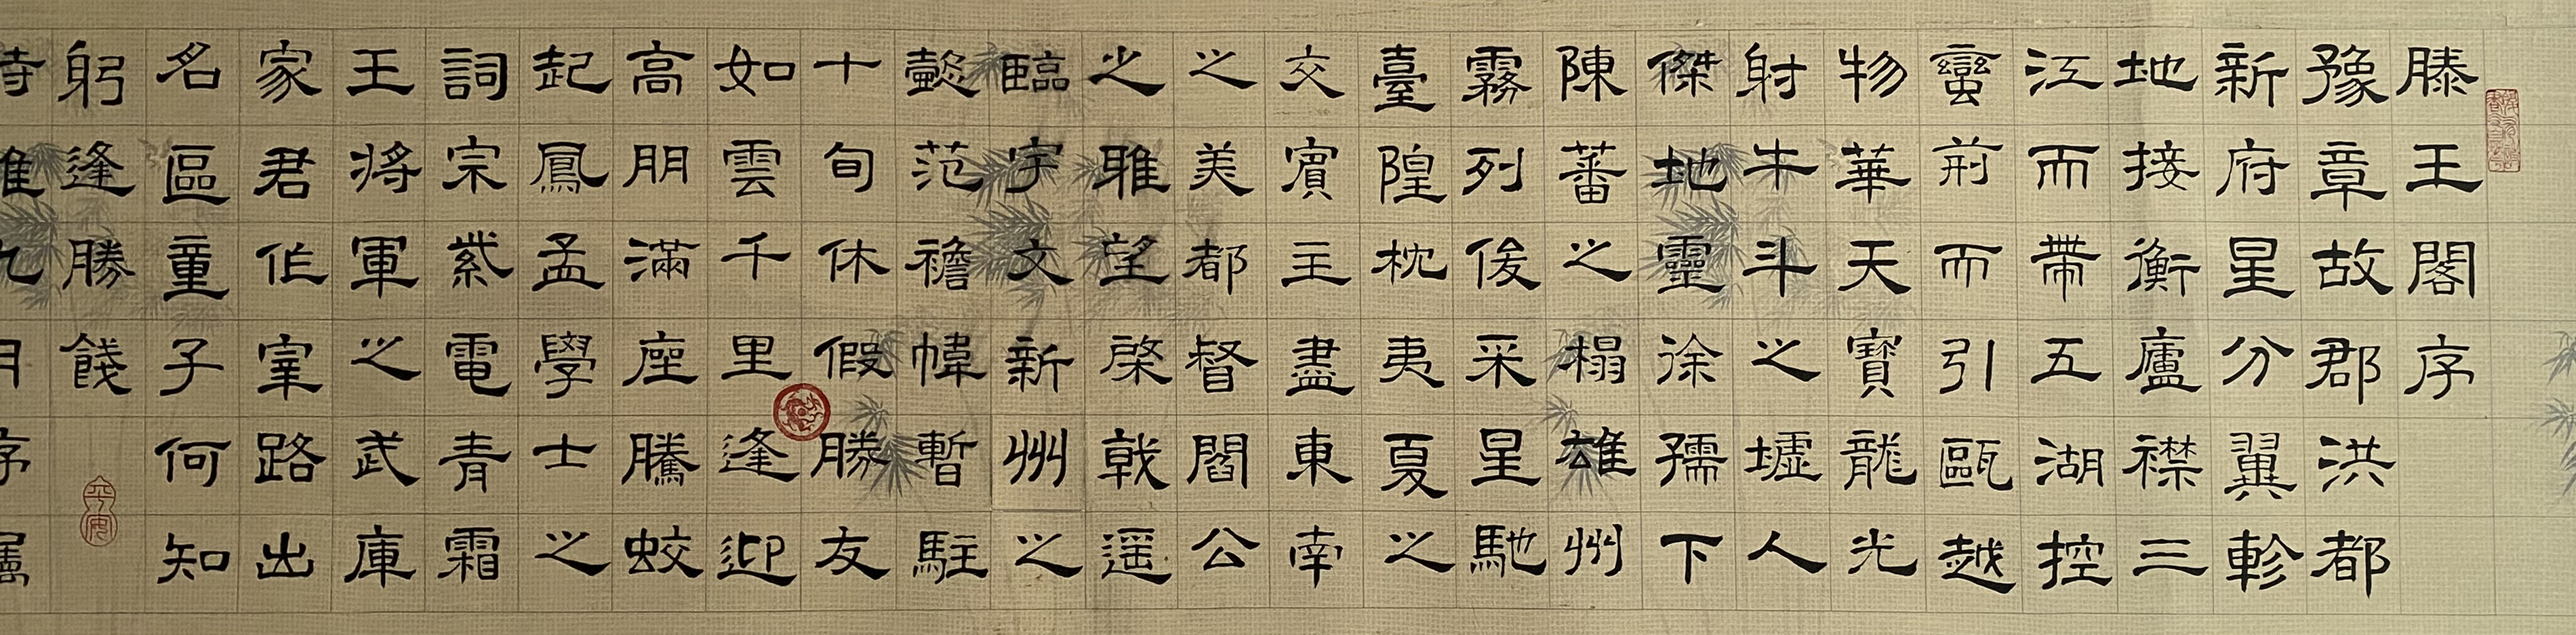 滕王閣序
豫章故郡洪都
新府星分翼軫
地接衡廬襟三
江而帶五湖控
蠻荊而引甌越
物華天寶龍光
射牛斗之墟人
傑地靈徐孺下
陳蕃之榻雄州
霧列俊采星馳
臺隍枕夷夏之
交賓主盡東南
之美都督閻公
之雅望棨戟遥
臨宇文新州之
懿范襜幃暫駐
十旬休假勝友
如雲千里逢迎
高朋滿座騰蛟
起鳳孟學士之
詞宗紫電青霜
王將軍之武庫
家君作宰路出
名區童子何知
躬逢勝餞
平安